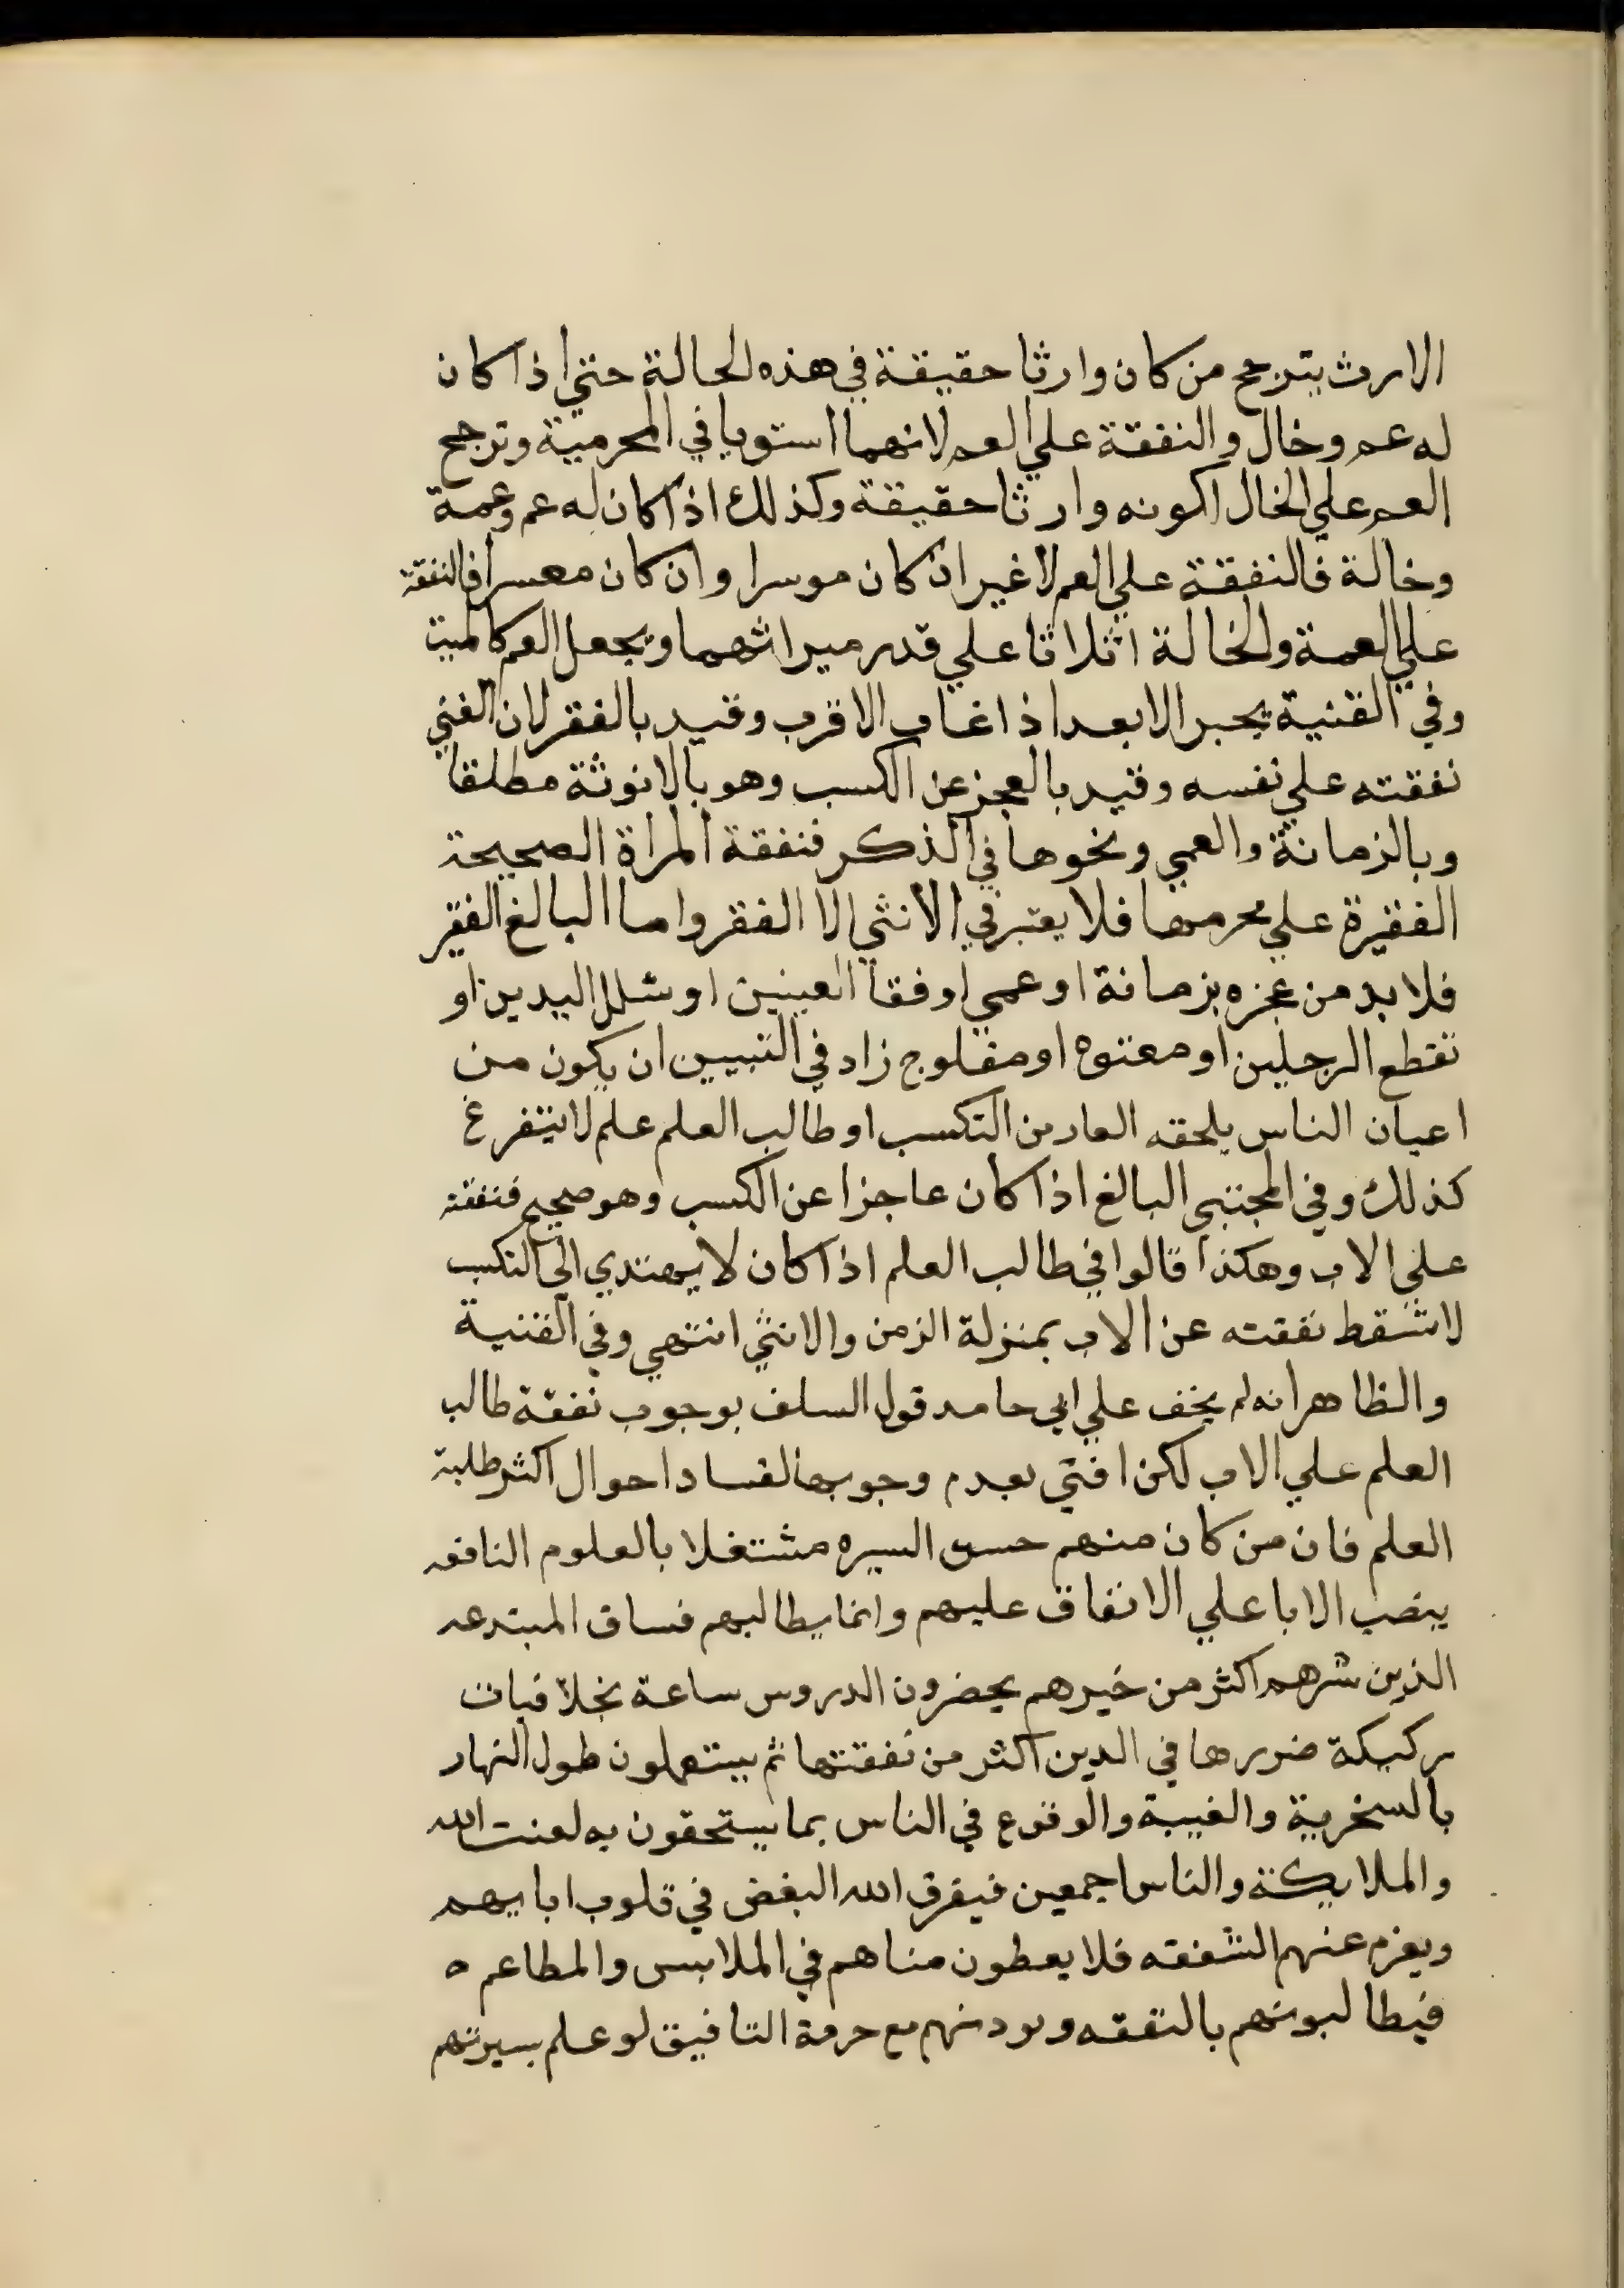 الارث يترجح من كان وارثا حقيقة في هذه الحالة حتي اذا كان
له عم وخال والنفقة علي العم لانهما استويا في المحرمية وترجح
العم علي الخال لكونه وارثا حقيقة وكذلك اذا كان له عم وعمة
وخالة فالنفقة علي العم لا غير ان كان موسرا وان كان معسرا فالنفقة
علي العمة والخالة اثلاثا علي قدر ميراثهما ويجعل العم كالميت
وفي القنية يجبر الابعد اذا غاب الاقرب وقيد بالفقر لان الغني
نفقته علي نفسه وقيد بالعجز عن الكسب وهو بالانوثة مطلقا
وبالزمانة والعمي ونحوها في الذكر فنفقة المراة الصحيحة
الفقيرة علي محرمها فلا يعتبر في الانثي الا الفقر واما البالغ الفقير
فلا بد من عجزه بزمانة او عمي او فقا العينين او شلل اليدين او
تقطع الرجلين او معتوه او مفلوج زاد في التبيين ان يكون من
اعيان الناس يلحقه العار من التكسب او طالب العلم علم لا يتفرغ
كذلك وفي المجتبي البالغ اذا كان عاجزا عن الكسب وهو صحيح فنفقته
علي الاب وهكذا قالوا في طالب العلم اذا كان لا يهتدي الي التكسب
لا تسقط نفقته عن الاب بمنزلة الزمن والانثي انتهي وفي القنية
والظاهر انه لم يخف علي ابي حامد قول السلف بوجوب نفقة طالب
العلم علي الاب لكن افتي بعدم وجوبها لفساد احوال اكثر طلبة
العلم فان من كان منهم حسن السيره مشتغلا بالعلوم النافعه
ينصب الابا علي الانفاق عليهم وانما يطالبهم فساق المبتدعه
الذين شرهم اكثر من خيرهم يحضرون الدروس ساعة بخلافيات
ركيكة ضررها في الدين اكثر من نفقتها ثم يشتعلون طول النهار
بالسخرية والغيبة والوقوع في الناس بما يستحقون به لعنت الله
والملايكة والناس اجمعين فيفرق الله البغض في قلوب ابايهم
وبعزم عنهم الشفقه فلا يعطون مناهم في الملابس والمطاعم ه
فيطالبونهم بالنفقه ويودنهم مع حرمة التافيق لو علم بسيرتهم